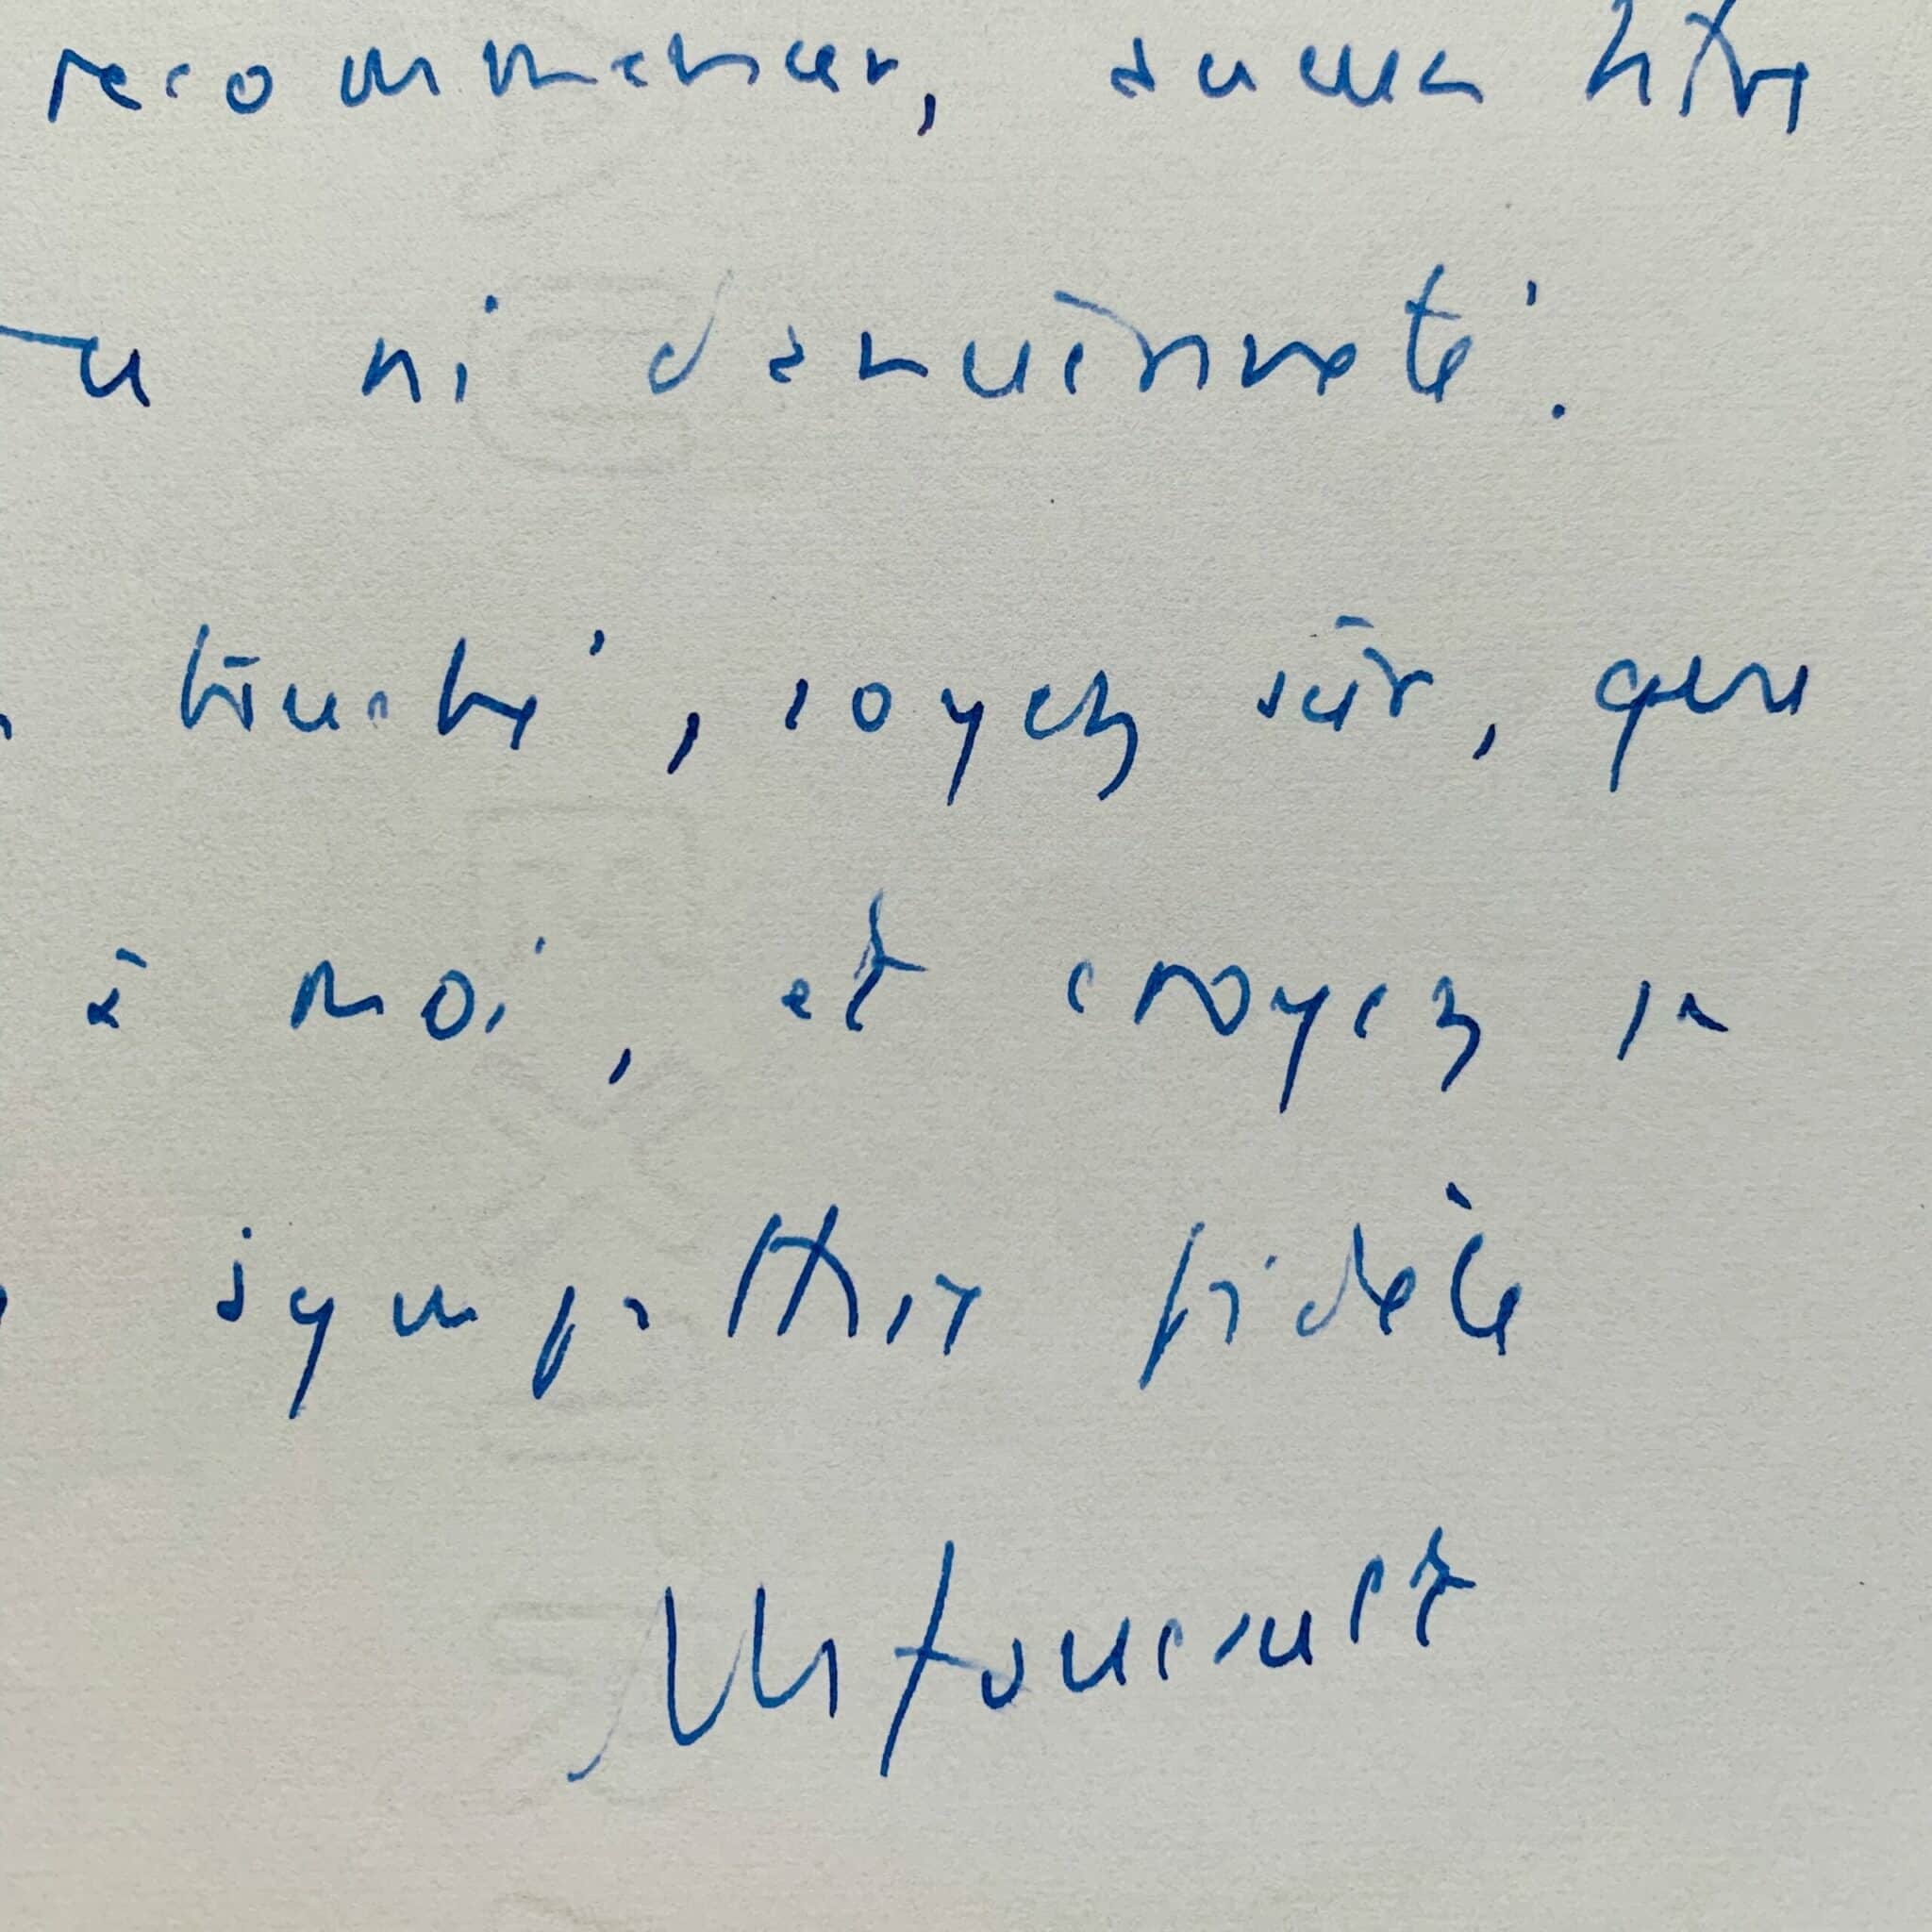 recommencer, aucun titre
ni d'ancienneté.
touché, soyez sûr, que
à moi, et croyez je
sympathie fidèle
M Foucault